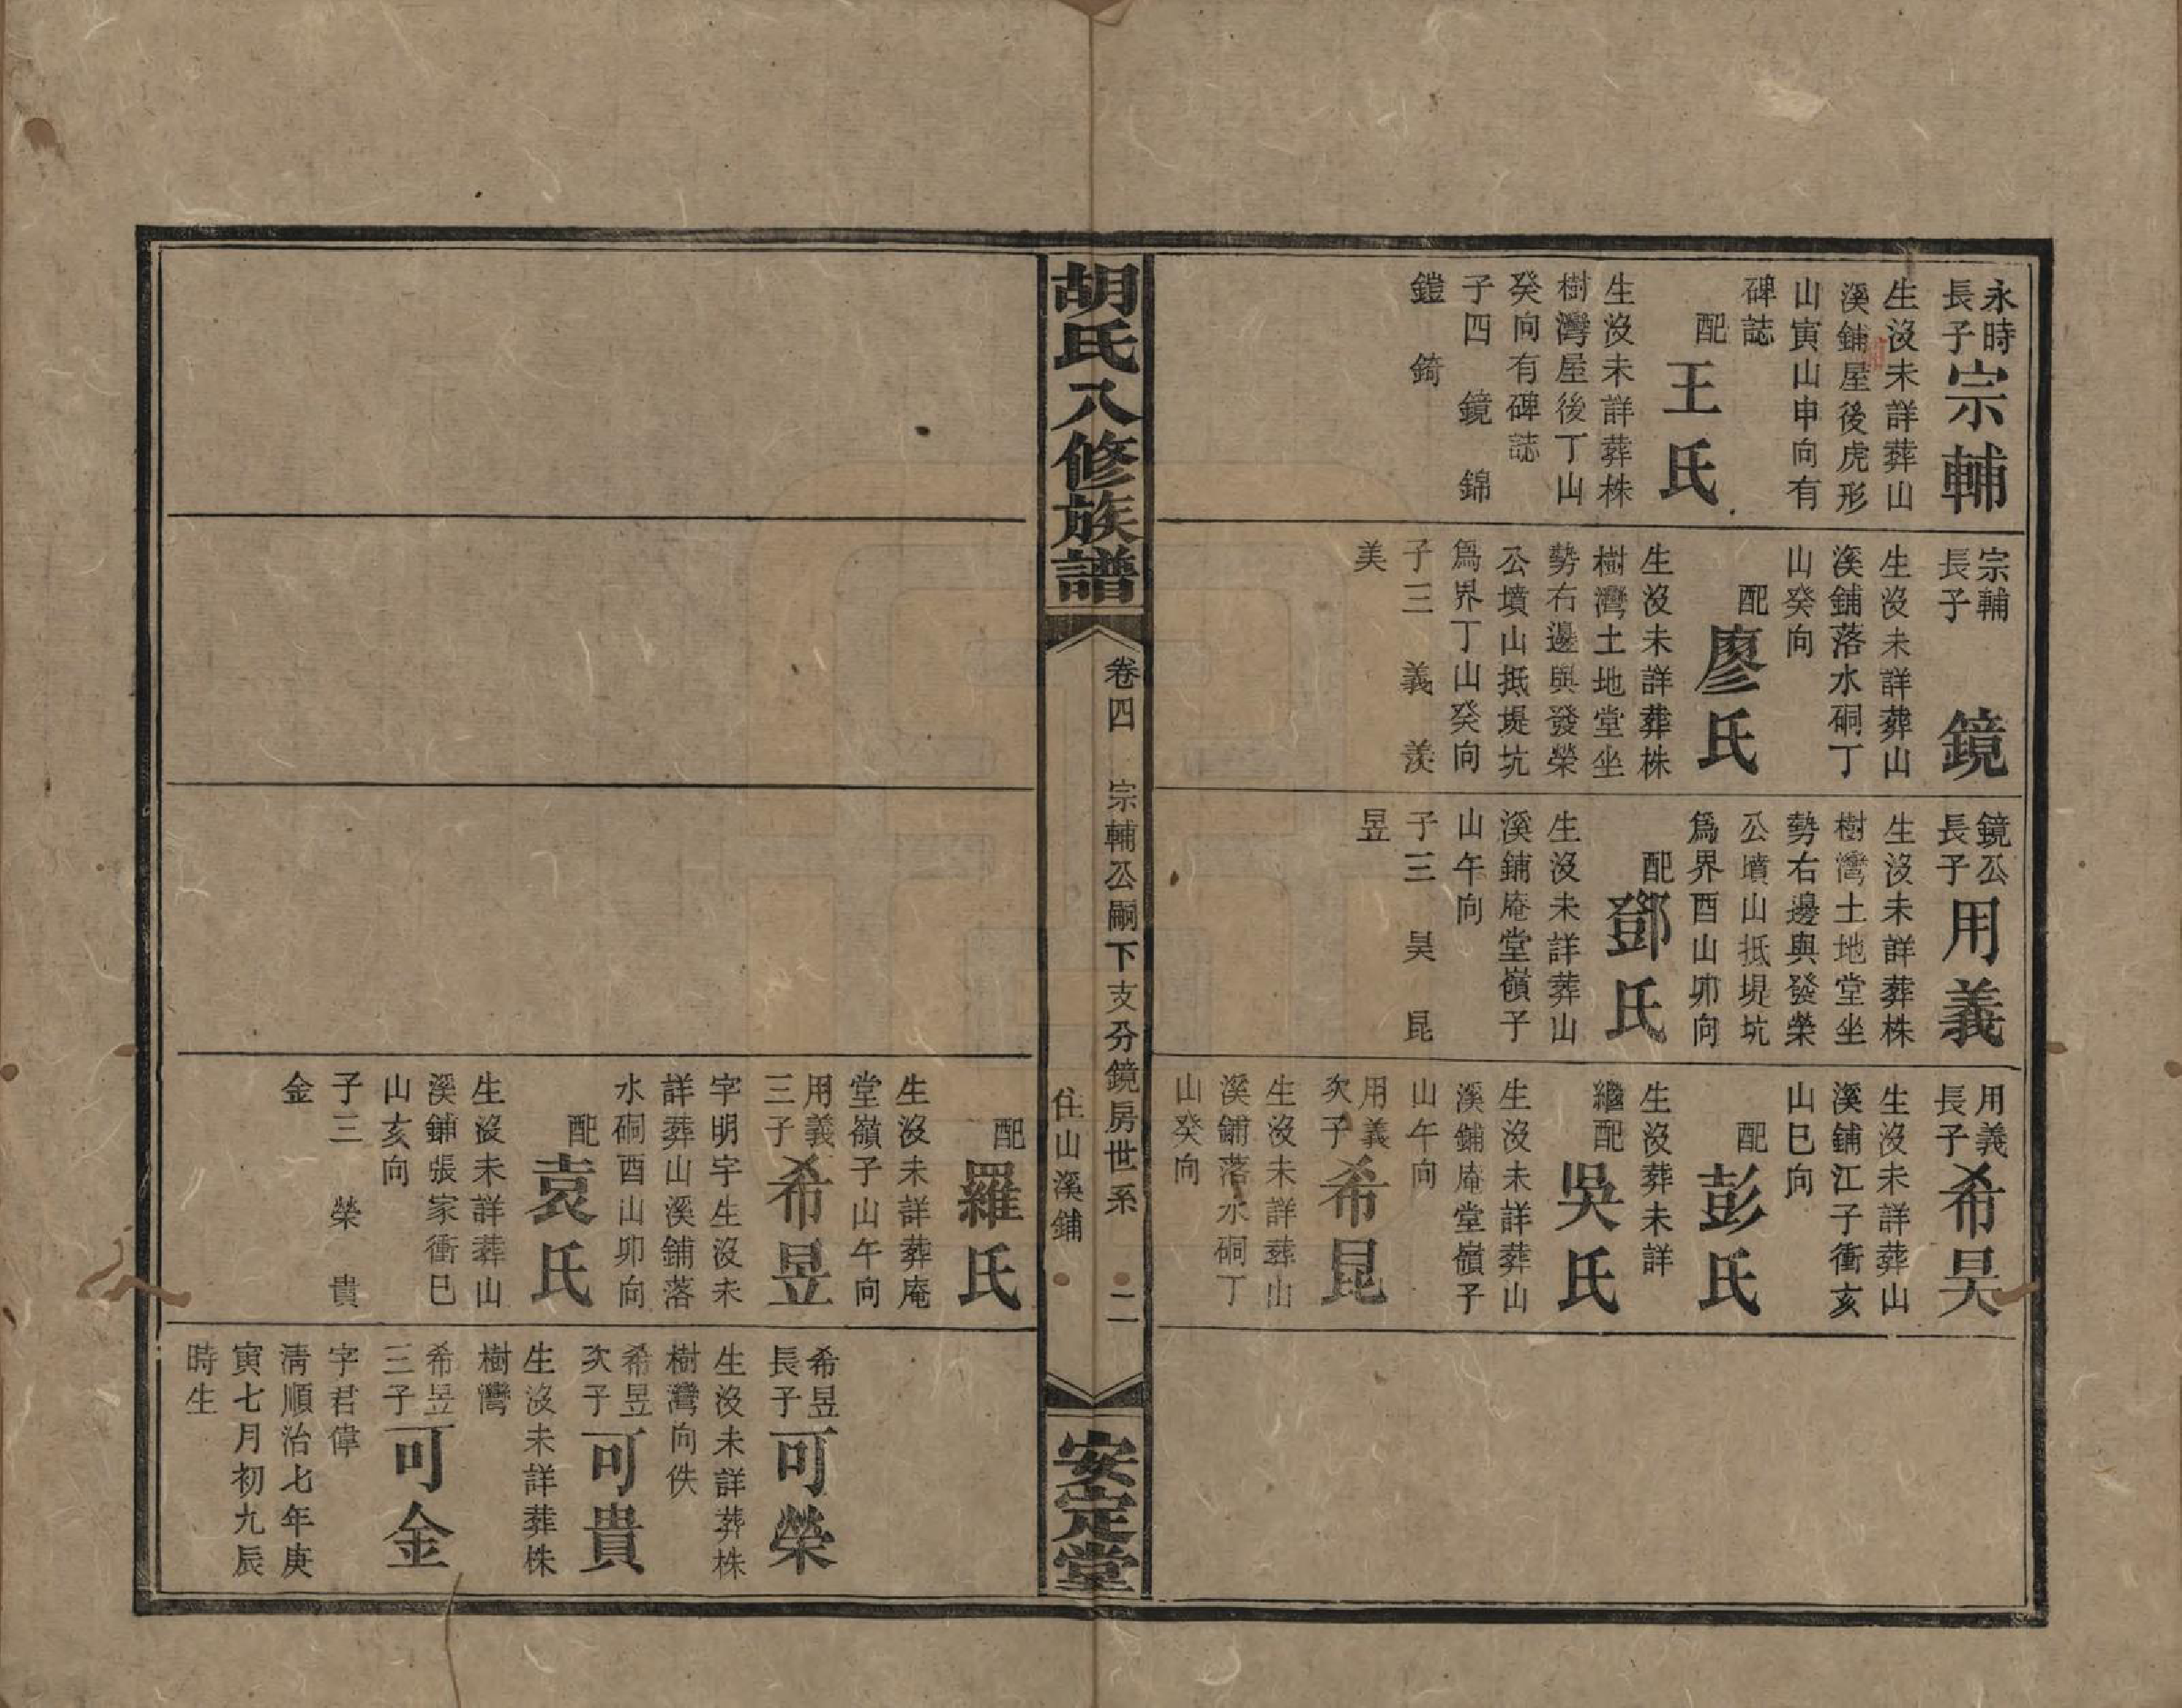 永時
長子
宗輔
生沒未詳葬山
溪鋪屋後虎形
山寅山申向有
碑誌
配
王氏
生沒未詳葬株
樹灣屋後丁山
癸向有碑誌
子四 鏡 錦
鎧 錡
宗輔
長子
鏡
生沒未詳葬山
溪鋪落水硐丁
山癸向
配
廖氏
生沒未詳葬株
樹灣土地堂坐
勢右邊與發榮
公墳山抵堤坑
爲界丁山癸向
子三 義 羨
美
鏡公
長子
用義
生沒未詳葬株
樹灣土地堂坐
勢右邊與發榮
公墳山抵堤坑
爲界酉山卯向
配
鄧氏
生沒未詳葬山
溪鋪庵堂嶺子
山午向
子三 昊 昆
昱
用義
長子
希昊
生沒未詳葬山
溪鋪江子衝亥
山巳向
配
彭氏
生沒葬未詳
繼配
吳氏
生沒未詳葬山
溪鋪庵堂嶺子
山午向
用義
次子
希昆
生沒未詳葬山
溪鋪落水硐丁
山癸向
胡氏八修族譜
卷四 宗輔公嗣下支分鏡房世系 二
住山溪鋪
安定堂
配
羅氏
生沒未詳葬庵
堂嶺子山午向
用義
三子
希昱
字明宇生沒未
詳葬山溪鋪落
水硐酉山卯向
配
袁氏
生沒未詳葬山
溪鋪張家衝巳
山亥向
子三 榮 貴
金
希昱
長子
可榮
生沒未詳葬株
樹灣向佚
希昱
次子
可貴
生沒未詳葬株
樹灣
希昱
三子
可金
字君偉
清順治七年庚
寅七月初九辰
時生